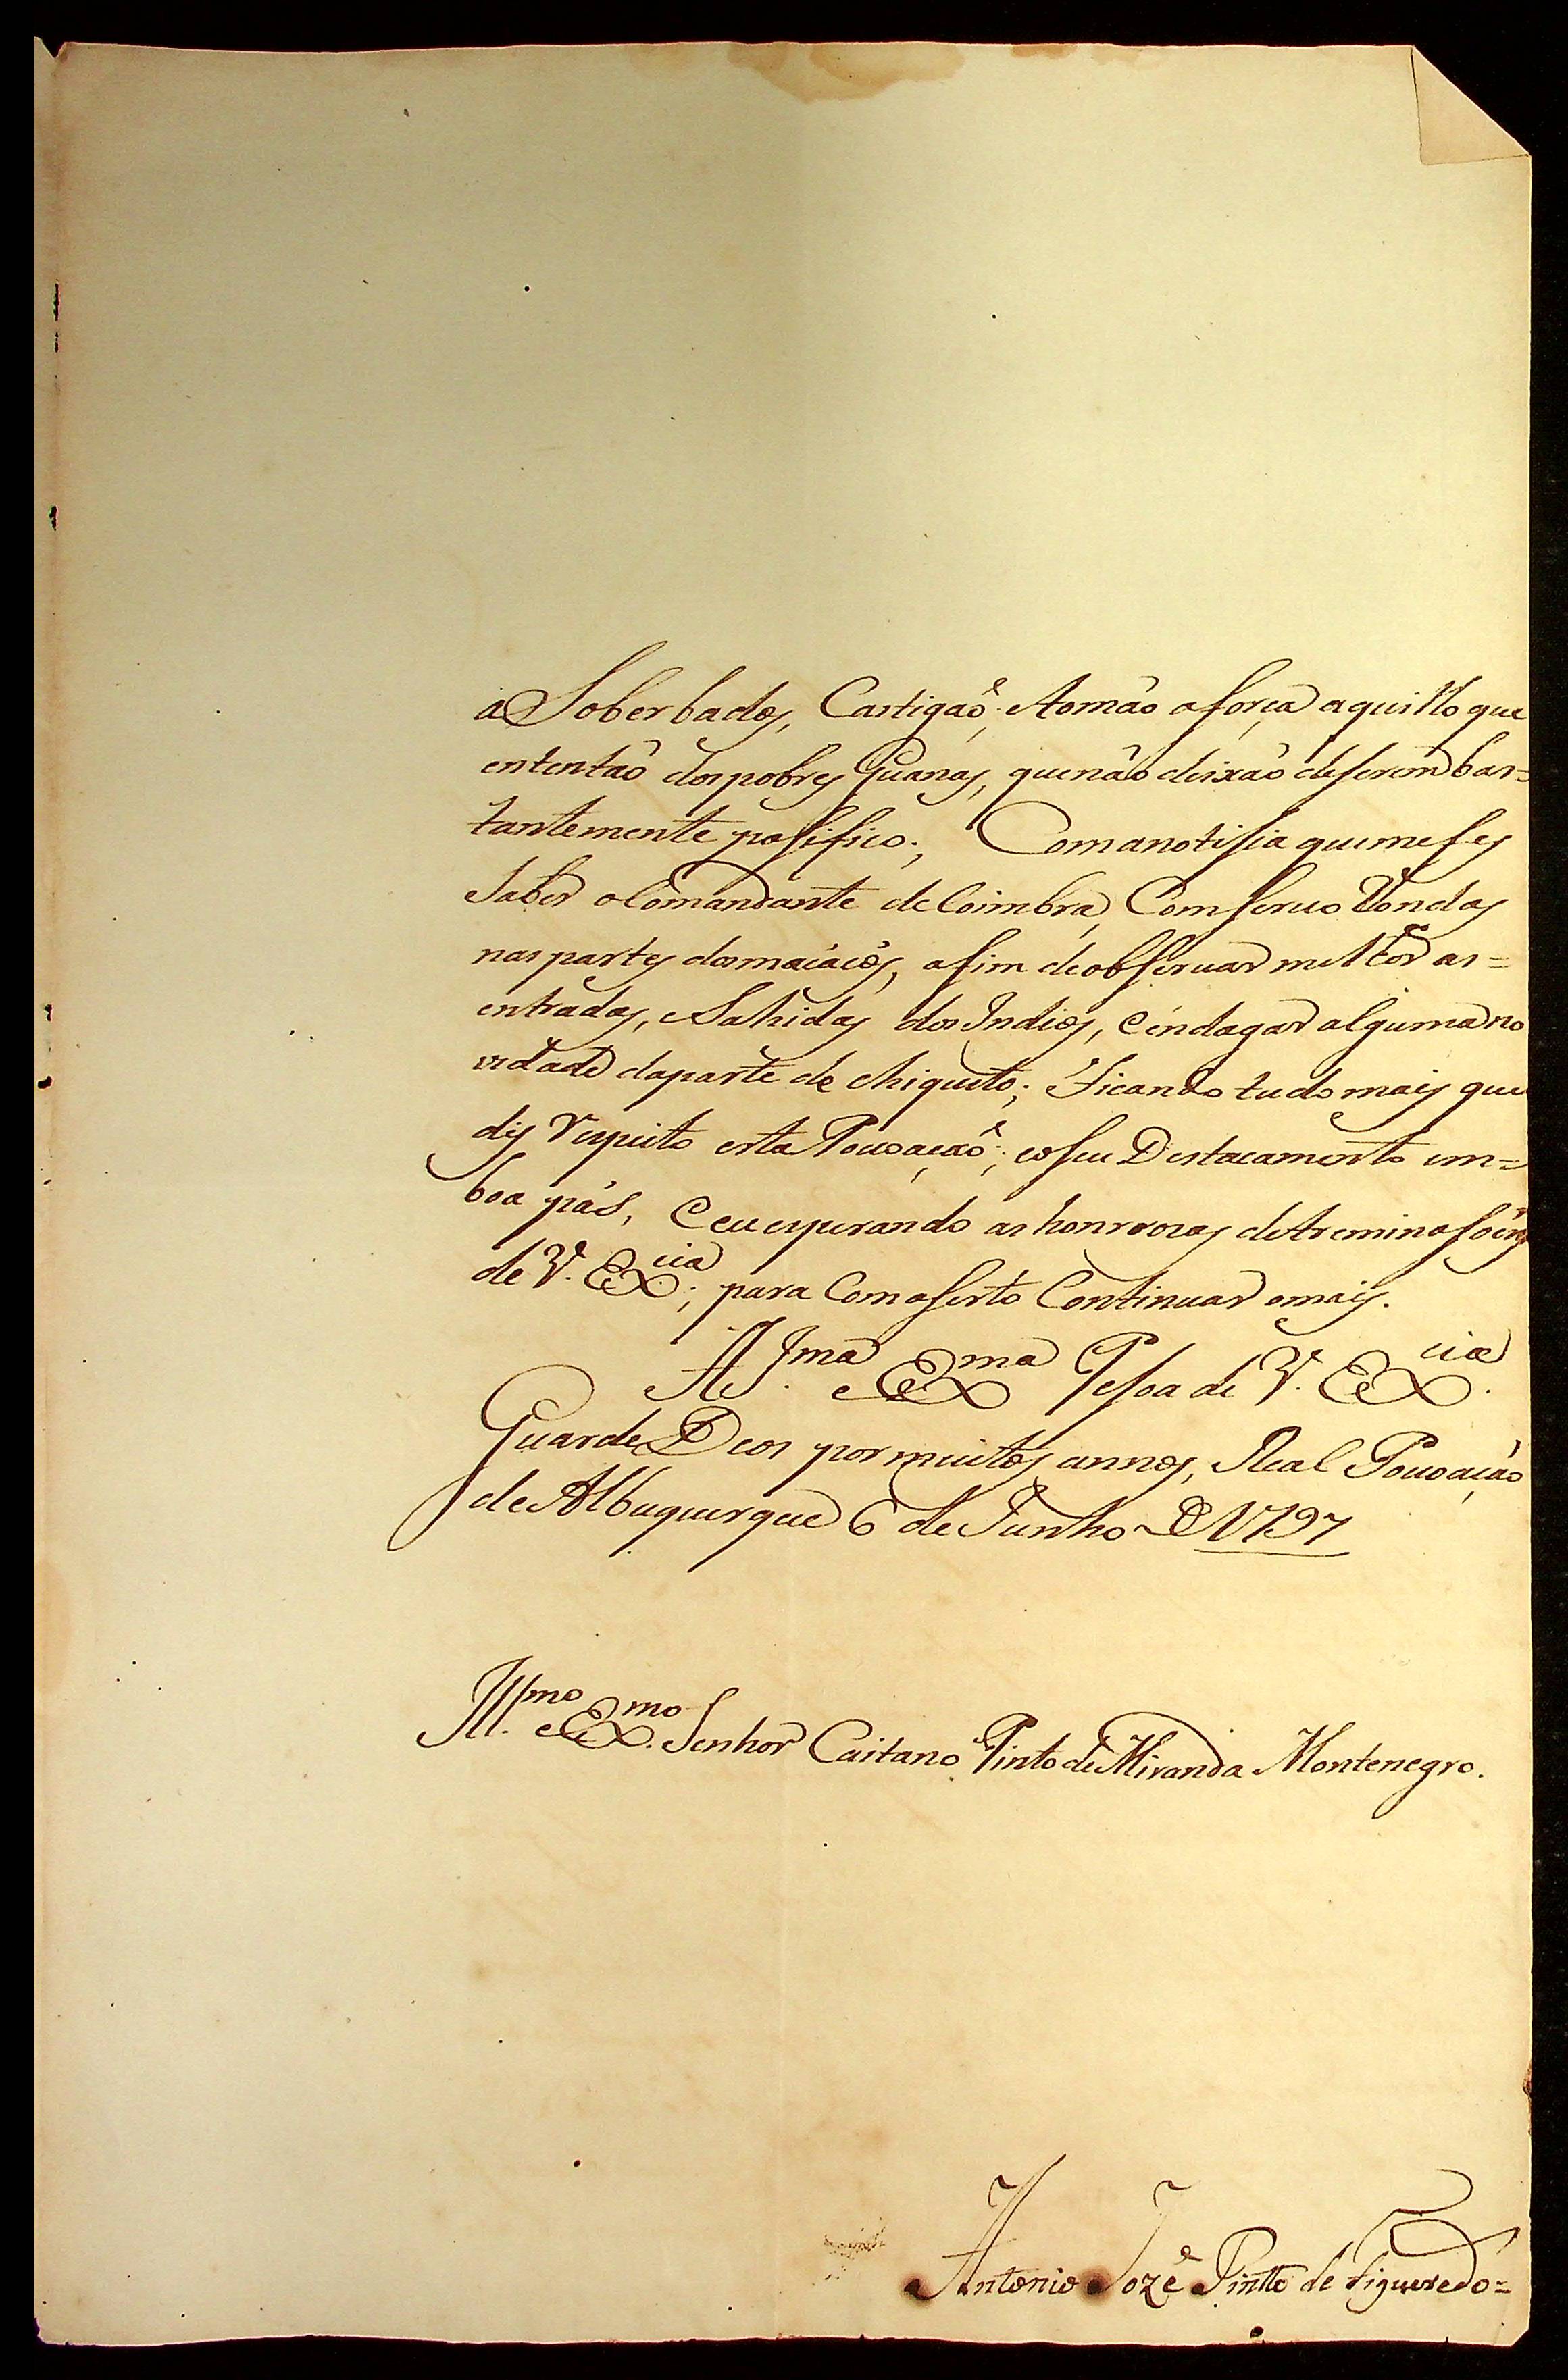 a Soberbados, Castigaõ, etomaõ aforça aquillo que
ententaõ dos pobres Guanas, que naõ deixaõ deserem bas=
tantemente pasifico; Com anotisia quemefes
Saber oComandante deCoimbra, Comseruo Rondas
nas partes dos maiáios, afim deobseruar milhor as=
entradas, eSahidas dos Indios, e índagar alguma no
vidade daparte de chiquito; Ficando tudo mais que
dis respeito esta Pouoaçaõ; eoseu Destacamento em=
boa pás, e eu esperando as honrrozas detreminasoẽns
de V. Ex.cia; para Com aserto Continuar omais.
A Il.ma e Ex.ma Pesoa de V. Ex.cia
Guarde Deos por muitos annos, Real Pouoaçaõ
de Albuquerque 6 de Junho de 1797
Ill.mo e Ex.mo Senhor Caitano Pinto de Miranda Montenegro.
Antonio Jozé Pinto de Figueredo=